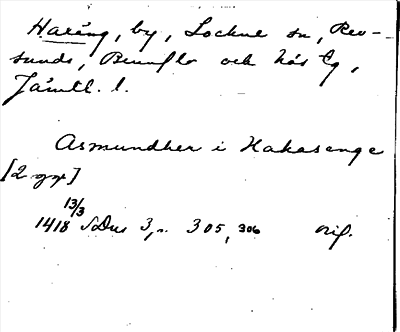 Haxäng, by, Lockne sn, Rev-
sunds, Brunflo och Näs tg,
Jämtl. l.
Asmundher i Hakasenge
[2 ggr]
13/3
1418 SDns 3, s. 305, 306 orig.